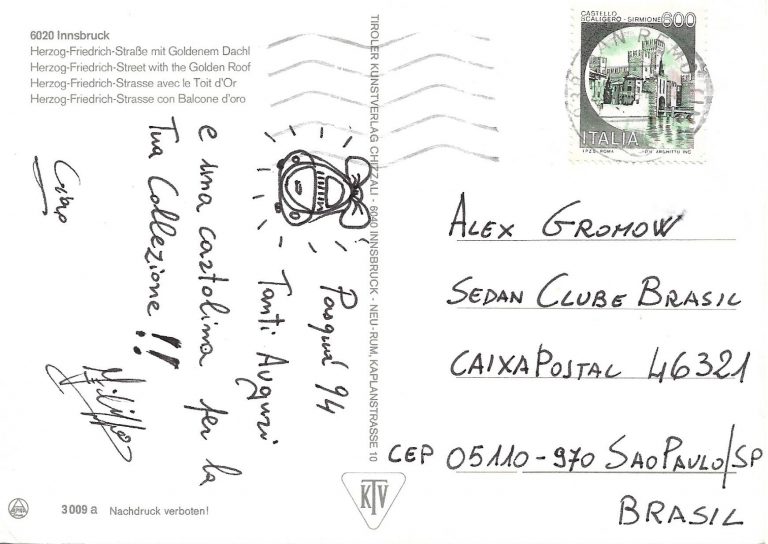 6020 Innsbruck
Herzog-Friedrich-Straße mit Goldenem Dachl
Herzog-Friedrich-Street with the Golden Roof
Herzog-Friedrich-Strasse avec le Toit d'Or
Herzog-Friedrich-Strasse con Balcone d'oro
Pasqua 94
Tanti Auguri
e una cartolina per la
Tua Collezione!!
Ciao
Filippo
3009 a Nachdruck verboten!
TIROLER KUNSTVERLAG CHIZZALI - 6040 INNSBRUCK - NEU-RUM, KAPLANSTRASSE 10
KTV
CASTELLO
SCALIGERO - SIRMIONE 600
ITALIA
I.P.Z.S. ROMA
SAN REMO
ALEX GROMOW
SEDAN CLUBE BRASIL
CAIXA POSTAL 46321
CEP 05110-970 SAO PAULO/SP
BRASIL